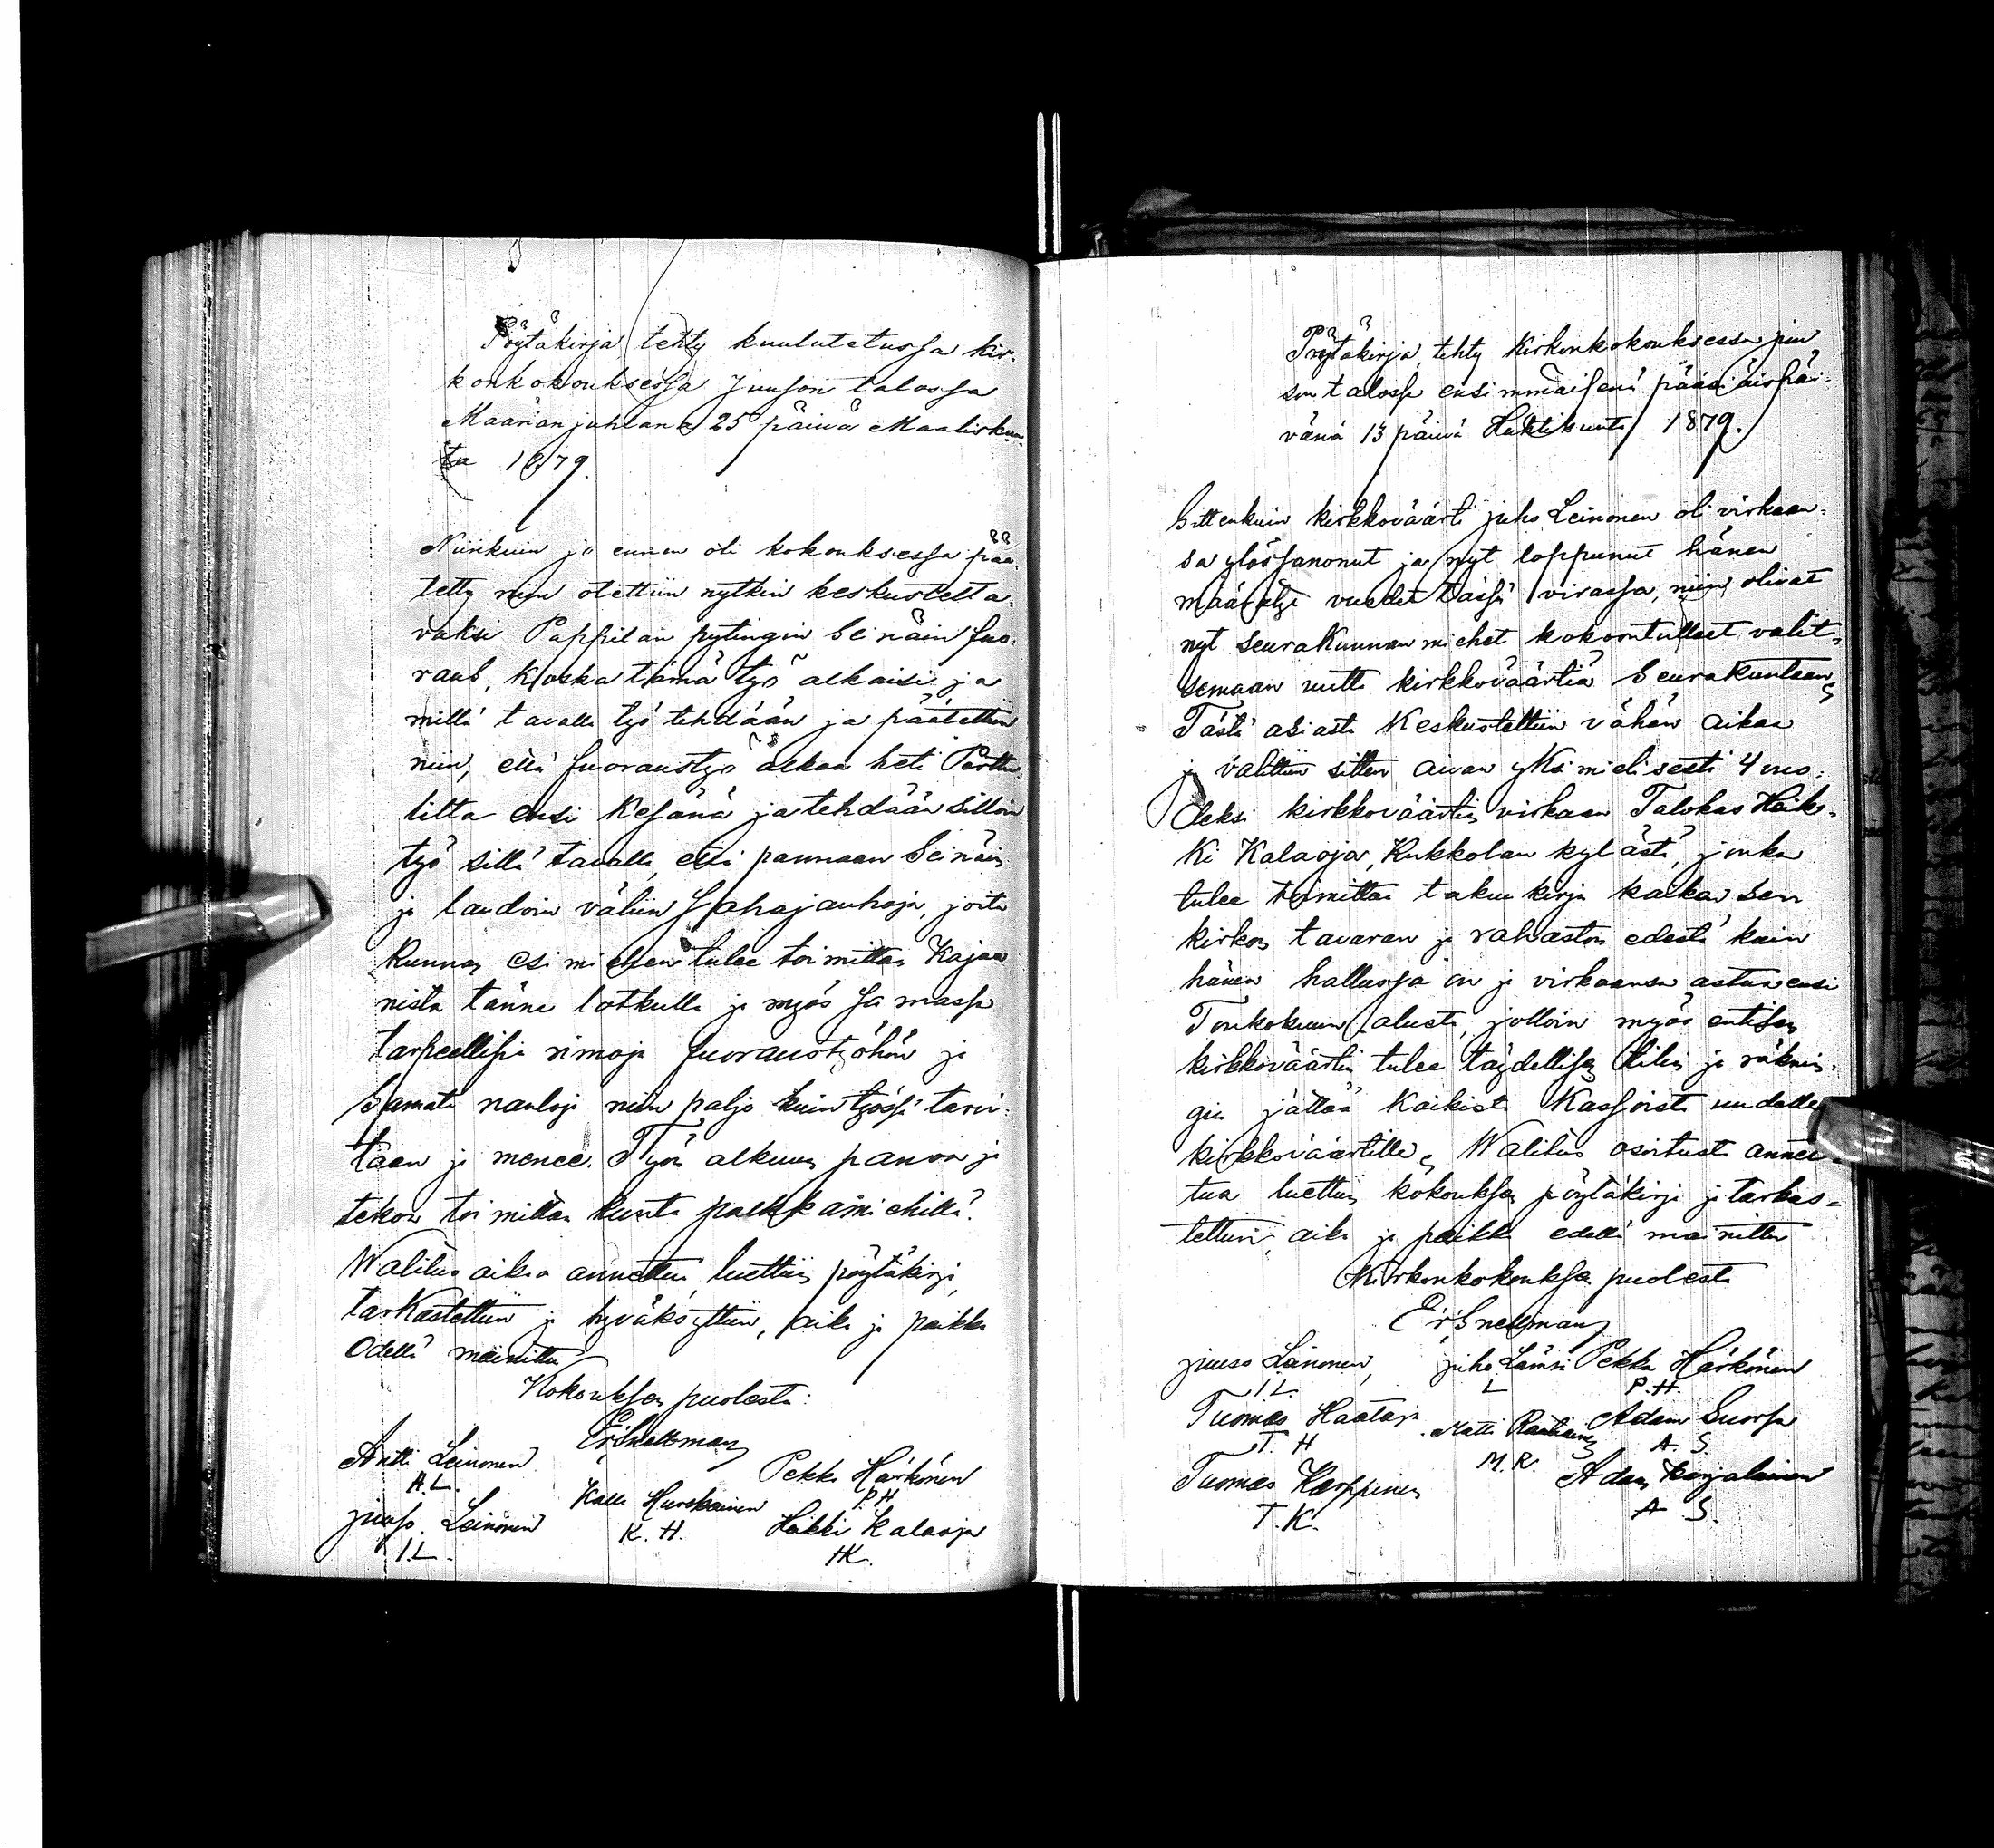 Pöytäkirja tehty kuulutetussa kir-
konkokouksessa Juuson talossa
Maarianjuhlana 25 päivä Maaliskuu-
ta 1879.
Niinkuin jo ennen oli kokouksessa pää-
tetty niin otettiin nytkin keskustelta-
vaksi Pappilan pytingin seinäin vuo-
raus, koska tämä työ alkaisi ja
millä tavalla työ tehdään ja päätettiin
niin, että vuoraustyö alkaa heti Perttu-
litta ensi kesänä ja tehdään silloin
työ sillä tavalla, että pannaan seinäin
ja laudoin väliin sahajauhoja, joita
kunnan esimiehen tulee toimittaa Kajaa
nista tänne lotkulla ja myös samassa
tarpeellisia rimoja vuoraustyöhön ja
samati nauloja niin paljo kuin työssä tarvi-
taan ja menee. Työn alkuun panon ja
tekon toimittaa kunta palkkamiehillä.
Walitus aika annettu, luettiin pöytäkirja,
tarkastettiin ja hyväksyttiin, aika ja paikka
edellä mainittu
Kokouksen puolesta:
Er. Snellman
Antti Leinonen
A.L.
Pekka Härkönen
P.H.
Kalle Hurskainen
K. H.
juuso Leinonen
I.L.
Heikki Kalaoja
HK.
Pöytäkirja, tehty kirkonkokouksessa juu
son talossa ensimmäisenä pääsiäispäi-
vänä 13 päivä Huhtikuuta 1879.
Sittenkuin kirkkoväärti juho Leinonen oli virkaan-
sa ylössanonut ja nyt loppunut hänen
määrätyt vuodet tässä virassa, niin olivat
nyt seurakunnan miehet kokoontulleet valit-
semaan uutta kirkkoväärtiä Seurakuntaan,
Tästä asiasta keskusteltiin vähän aikaa
ja valittiin sitten aivan yksimielisesti 4 vuo-
deksi kirkkoväärtin virkaan Talokas Heik-
ki Kalaoja, Kukkolan kylästä, jonka
tulee toimittaa takuu kirja kaiken sen
kirkon tavaran ja rahaston edestä kuin
hänen hallussa on ja virkaansa astuu ensi
Toukokuun alusta, jolloin myös entisen
kirkkoväärtin tulee täydellisen tilin ja räknin-
gin jättää kaikista kassoista uudelle
kirkkoväärtille, Walitus osoitusta annet-
tua luettiin kokouksen pöytäkirja ja tarkas-
tettiin, aika ja paikka edellä mainittu
Kirkonkokouksen puolesta
Er. Snellman
juuso Leinonen,
I L.
juho Lämsä
L
Pekka Härkönen
P.H.
Tuomas Haataja
T. H
Matti Rautiainen
M.R.
Adam Suorsa
A. S.
Tuomas Karppinen
T.K.
Adam Karjalainen
A S.